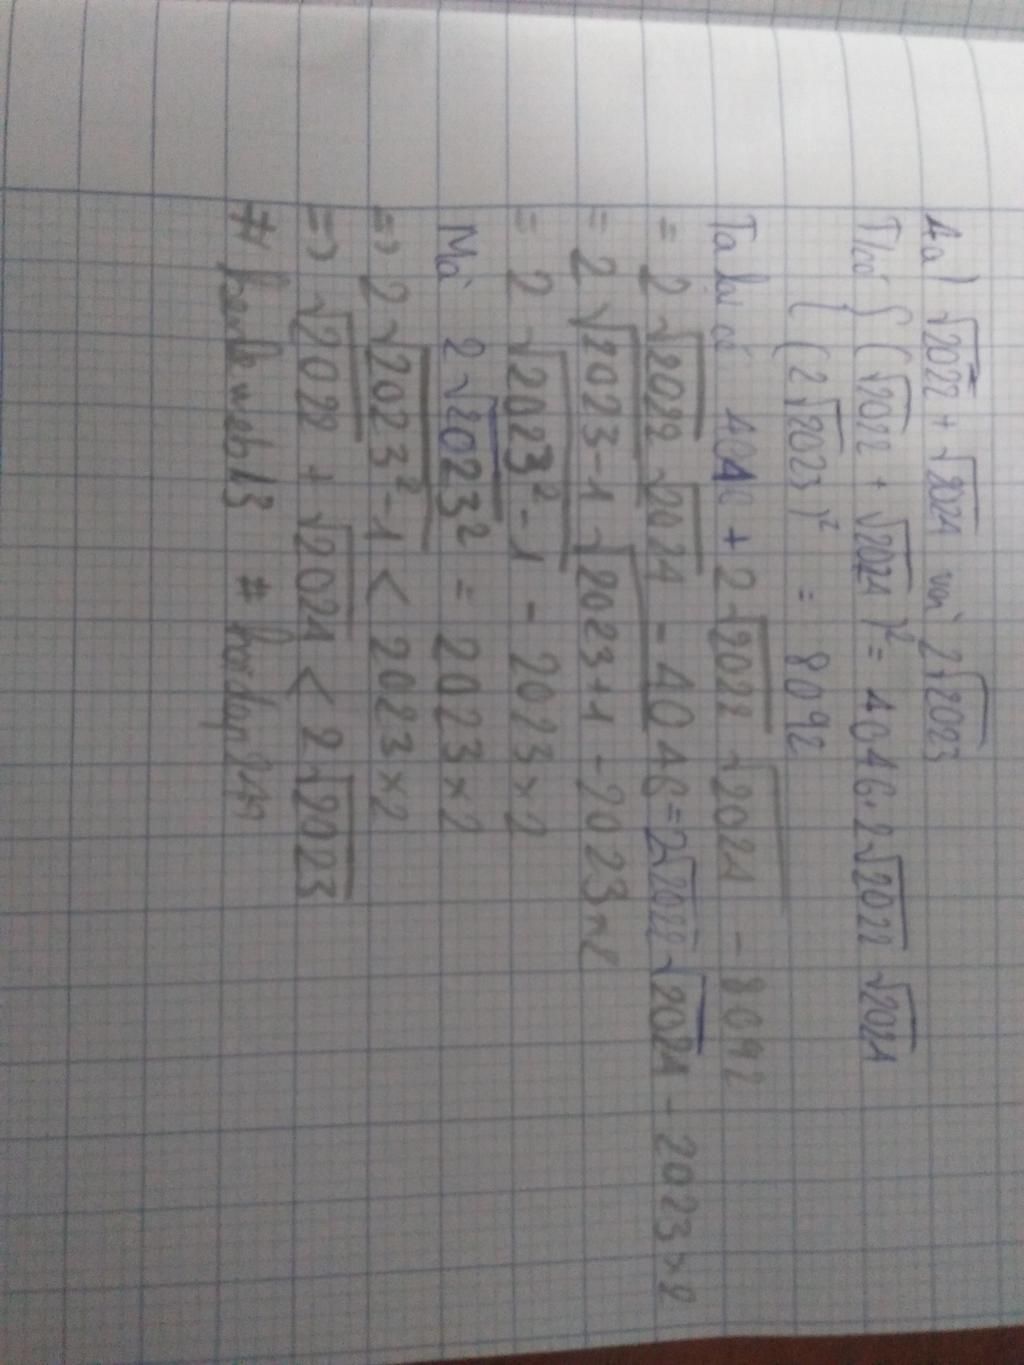 1a) √2022 + √2024 với 2√2023
Ta có { (√2022 + √2024)² = 4046 + 2√2022 √2024
{ (2√2023)² = 8092
Ta lại có 4046 + 2√2022 √2024 - 8092
= 2√2022 √2024 - 4046 = 2√2022 √2024 - 2023×2
= 2√2023-1 √2023+1 - 2023×2
= 2√2023²-1 - 2023×2
Mà 2√2023² = 2023×2
=> 2√2023²-1 < 2023×2
=> √2022 + √2024 < 2√2023